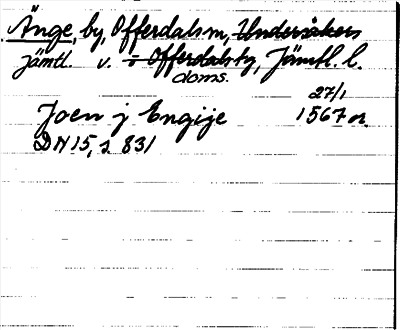 Änge, by, Offerdals sn, Undersåkers
Jämtl. v. ÷ Offerdals tg, Jämtl. l.
doms.
27/1
Joen j Engije 1567 or.
DN 15, s 831